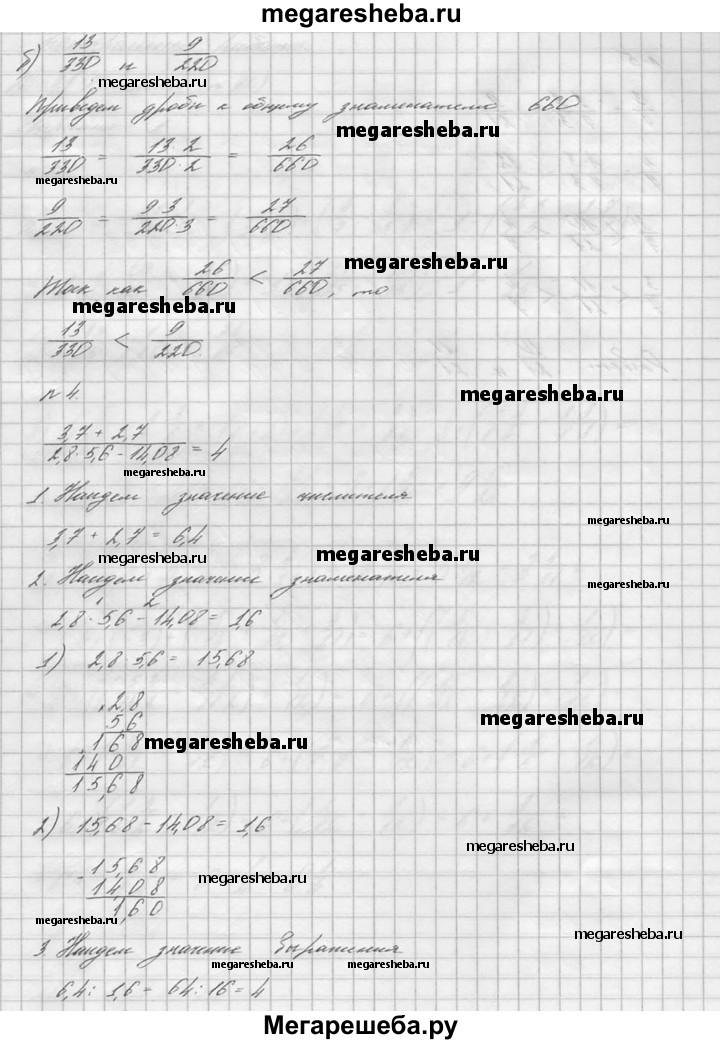 megaresheba.ru
б) 13/330 и 9/220
megaresheba.ru
Приведем дроби к общему знаменателю 660
megaresheba.ru
13/330 = 13·2/330·2 = 26/660
megaresheba.ru
9/220 = 9·3/220·3 = 27/660
megaresheba.ru
Так как 26/660 < 27/660, то
megaresheba.ru
13/330 < 9/220
megaresheba.ru
№ 4.
3,7 + 2,7/2,8·5,6 - 14,08 = 4
megaresheba.ru
1. Найдем значение числителя
megaresheba.ru
3,7 + 2,7 = 6,4
megaresheba.ru megaresheba.ru
2. Найдем значение знаменателя
megaresheba.ru
1 2
2,8 · 5,6 - 14,08 = 1,6
1) 2,8·5,6 = 15,68
2,8
5,6
megaresheba.ru
168
megaresheba.ru
140
15,68
2) 15,68 - 14,08 = 1,6
megaresheba.ru
- 15,68
megaresheba.ru
14,08
1,60
megaresheba.ru
megaresheba.ru
3. Найдем значение выражения
megaresheba.ru megaresheba.ru
6,4 : 1,6 = 64 : 16 = 4
Мегарешеба.ру